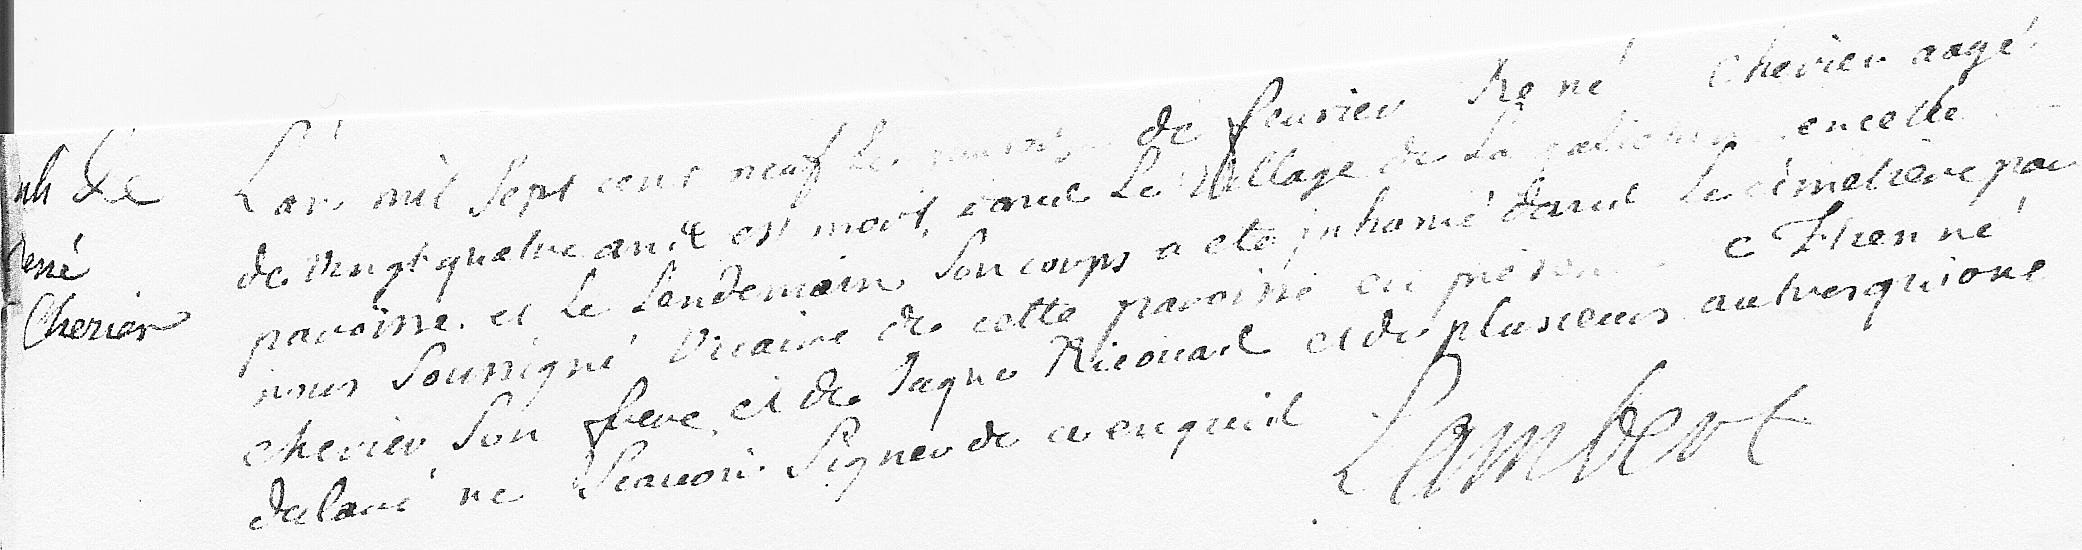 inh de
René
Cherier
L'an mil Sept cent neuf le de feurier René Cherier aagé
de vingt quatre ans est mort dans Le Village de La en cette
paroisse et Le Lendemain Son corps a eté inhumé dans Le cimetiere par
nous Soussigné Vicaire de cette paroisse en presen e Etienné
cherier Son frere et de Jaque Ricouard et de plusieurs autres qui ont
declaré ne Scauoir Signer de ce enquis
Lambert